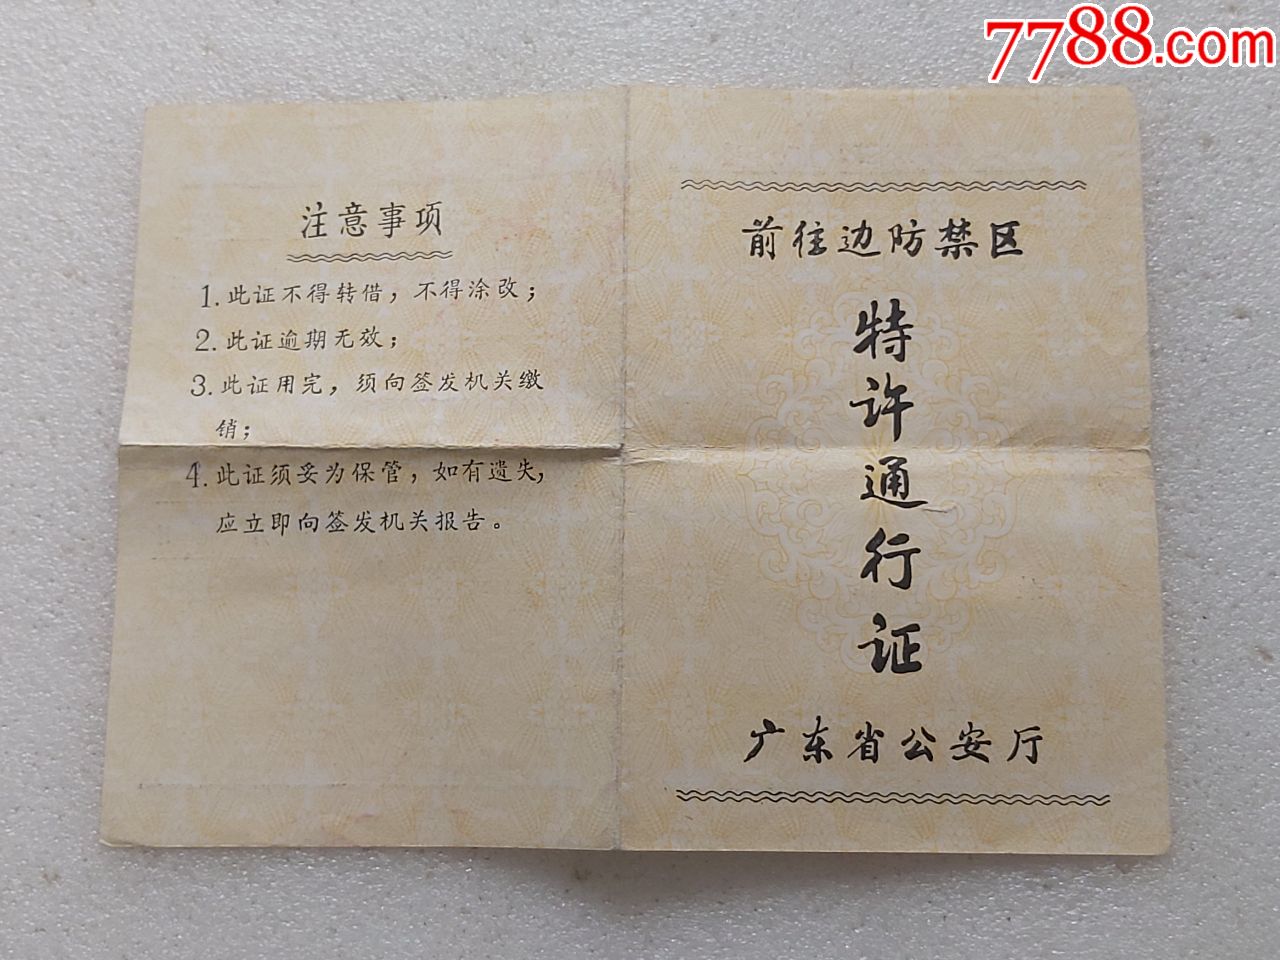 7788.com
注意事项
1. 此证不得转借，不得涂改；
2. 此证逾期无效；
3. 此证用完，须向签发机关缴
销；
4. 此证须妥为保管，如有遗失，
应立即向签发机关报告。
前往边防禁区
特许通行证
广东省公安厅